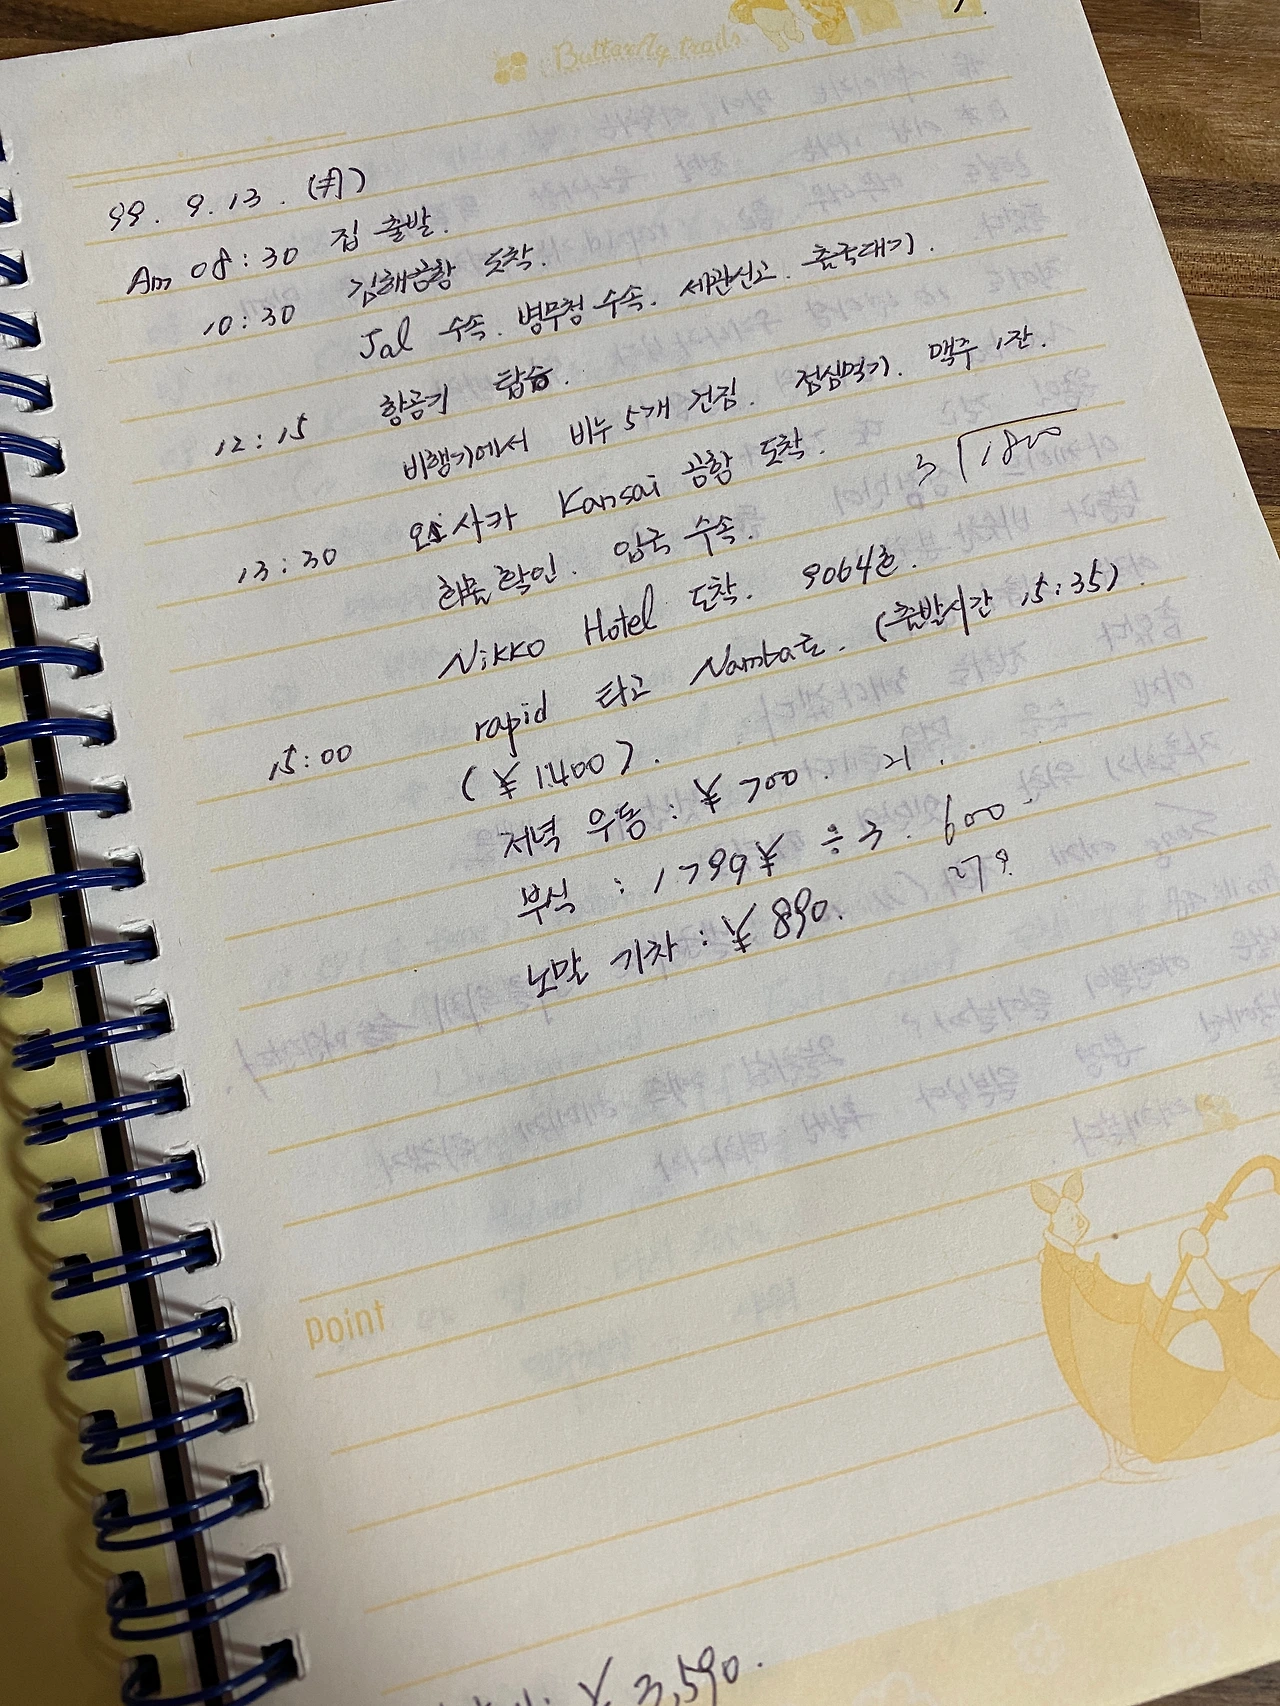 Butterfly trails
99. 9. 13. (月)
Am 08:30 집 출발.
10:30 김해공항 도착.
Jal 수속. 병무청 수속. 세관신고. 출국대기.
12:15 항공기 탑승.
비행기에서 비누 5개 건짐. 점심먹기. 맥주 1잔.
13:30 오사카 Kansai 공항 도착.
3 1800
화물 확인. 입국 수속.
Nikko Hotel 도착. 9064호.
15:00 rapid 타고 Namba로. (출발시간 15:35).
(¥ 1400).
저녁 우동 : ¥ 700.
부식 : 1799¥ ÷ 3. 600
노말 기차 : ¥ 890.
279.
point
¥ 3,590.